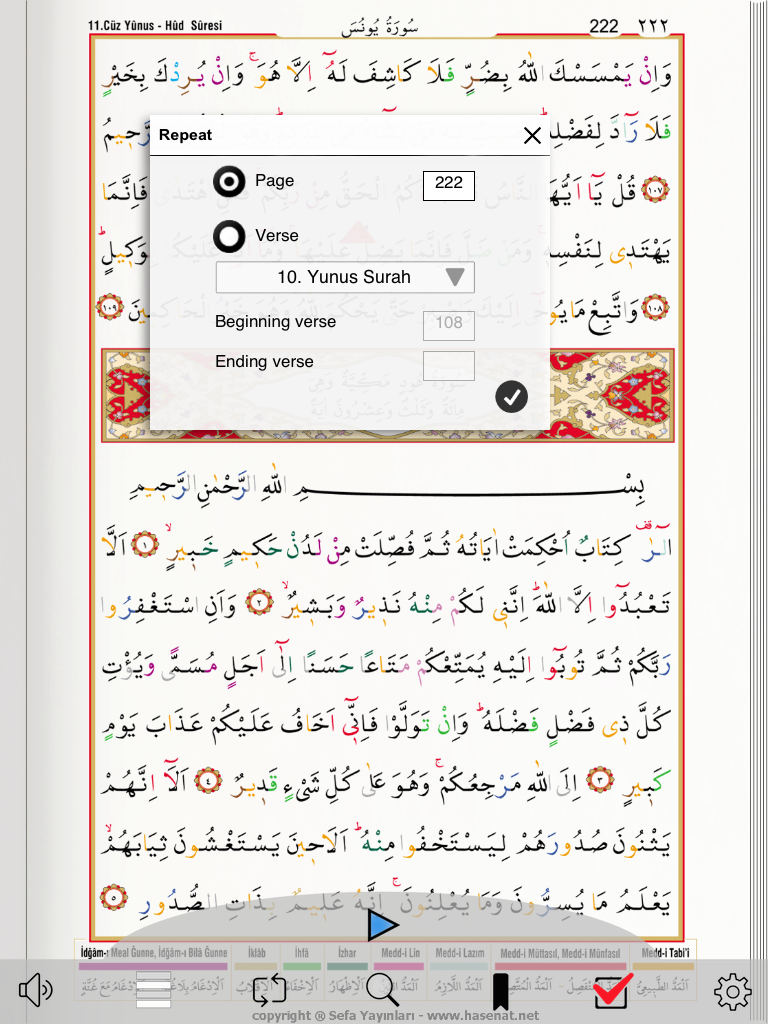 11.Cüz Yûnus - Hûd Sûresi
سُورَةُ يُونُسَ
222 ٢٢٢
وَاِنْ يَمْسَسْكَ اللّٰهُ بِضُرٍّ فَلَا كَاشِفَ لَهُٓ اِلَّا هُوَۚ وَاِنْ يُرِدْكَ بِخَيْرٍ
فَلَا رَٓادَّ لِفَضْلِهِ
Repeat
Page
222
قُلْ يَٓا اَيُّهَا
فَاِنَّمَا
Verse
يَهْتَدٖى لِنَفْسِهٖ
بِوَكٖيلٍۜ
10. Yunus Surah
وَاتَّبِعْ مَا يُوحٰٓى
Beginning verse
108
Ending verse
بِسْمِ اللّٰهِ الرَّحْمٰنِ الرَّحٖيمِ
الٓرٰ۠ كِتَابٌ اُحْكِمَتْ اٰيَاتُهُ ثُمَّ فُصِّلَتْ مِنْ لَدُنْ حَكٖيمٍ خَبٖيرٍۙ ١ اَلَّا
تَعْبُدُٓوا اِلَّا اللّٰهَۜ اِنَّنٖى لَكُمْ مِنْهُ نَذٖيرٌ وَبَشٖيرٌۙ ٢ وَاَنِ اسْتَغْفِرُوا
رَبَّكُمْ ثُمَّ تُوبُٓوا اِلَيْهِ يُمَتِّعْكُمْ مَتَاعًا حَسَنًا اِلٰٓى اَجَلٍ مُسَمًّى وَيُؤْتِ
كُلَّ ذٖى فَضْلٍ فَضْلَهُۜ وَاِنْ تَوَلَّوْا فَاِنّٖٓى اَخَافُ عَلَيْكُمْ عَذَابَ يَوْمٍ
كَبٖيرٍ ٣ اِلَى اللّٰهِ مَرْجِعُكُمْۚ وَهُوَ عَلٰى كُلِّ شَىْءٍ قَدٖيرٌ ٤ اَلَٓا اِنَّهُمْ
يَثْنُونَ صُدُورَهُمْ لِيَسْتَخْفُوا مِنْهُۜ اَلَا حٖينَ يَسْتَغْشُونَ ثِيَابَهُمْۙ
يَعْلَمُ مَا يُسِرُّونَ وَمَا يُعْلِنُونَۚ اِنَّهُ عَلٖيمٌ بِذَاتِ الصُّدُورِ ٥
İdğâm-ı Meal Ğunne, İdğâm-ı Bilâ Ğunne
İklâb
İhfâ
İzhar
Medd-i Lin
Medd-i Lazım
Medd-i Müttasıl, Medd-i Münfasıl
Medd-i Tabi'i
copyright ® Sefa Yayınları - www.hasenat.net